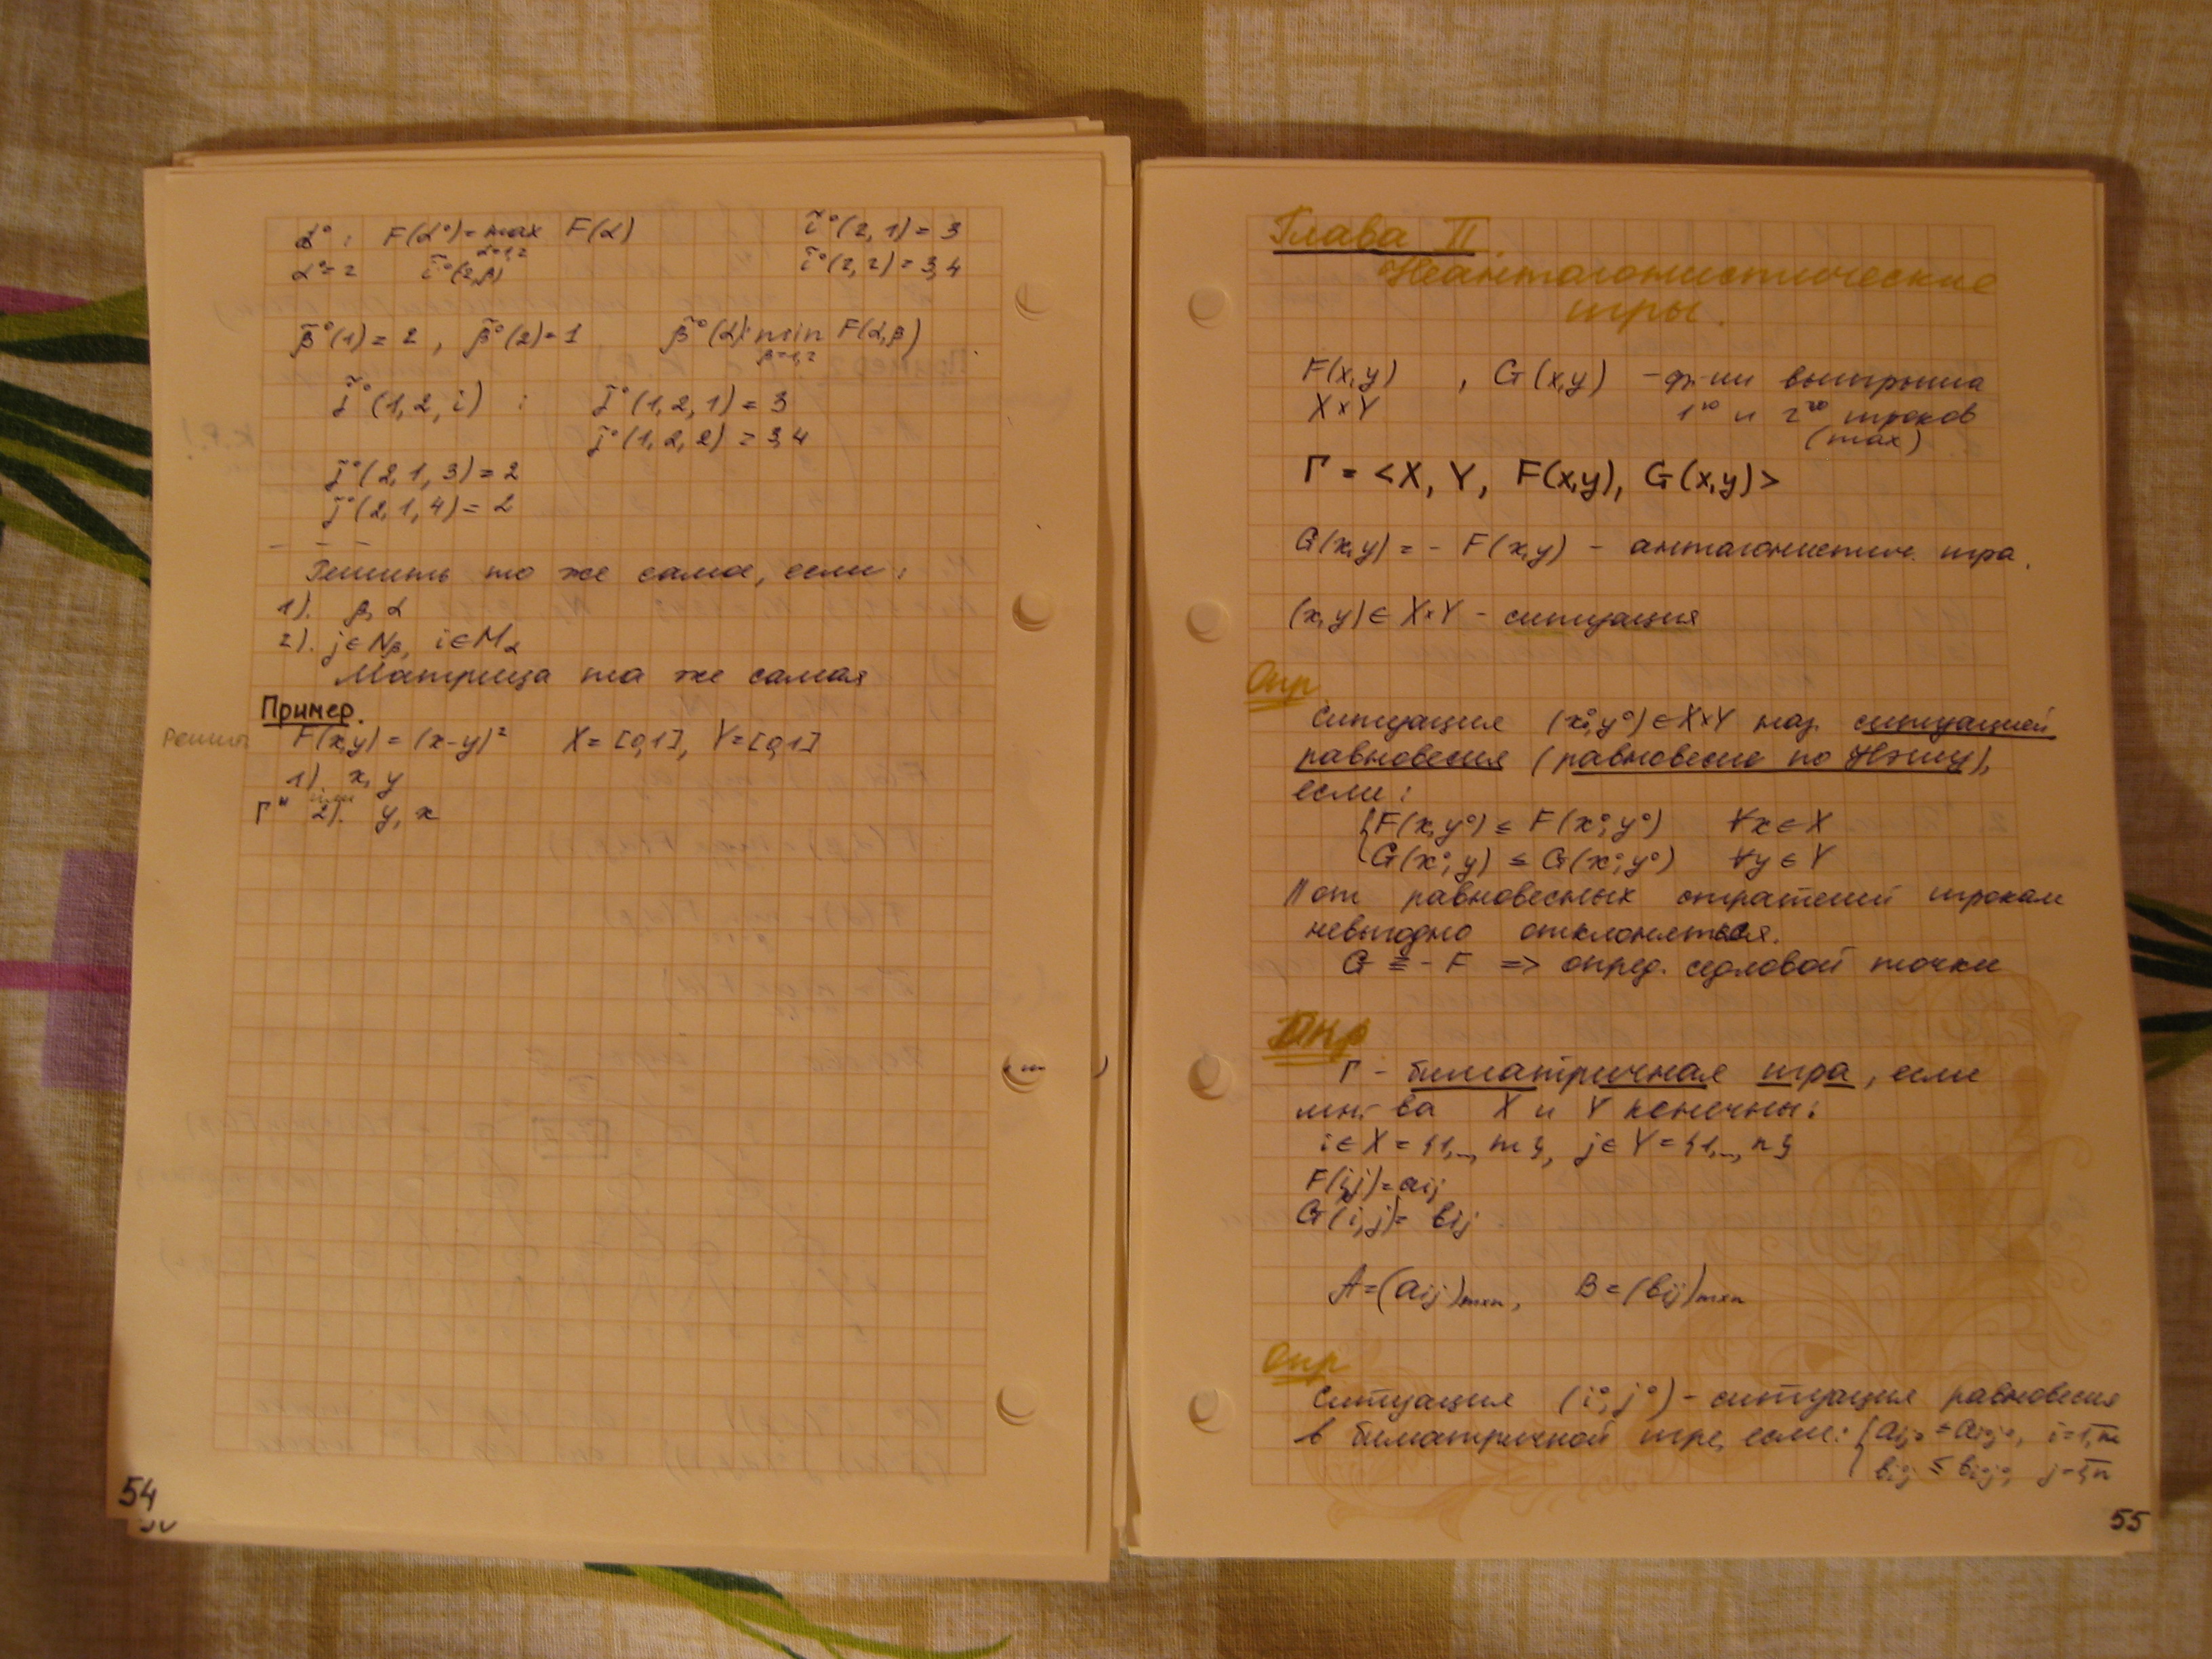 α° : F(α°) = max F(α)
α=1,2
α°=2 ĩ°(2,β)
ĩ°(2,1)=3
ĩ°(2,2)=3,4
β̃°(1)=2, β̃°(2)=1 β̃°(α): min F(α,β)
β=1,2
j̃°(1,2,i) : j̃°(1,2,1)=3
j̃°(1,2,2)=3,4
j̃°(2,1,3)=2
j̃°(2,1,4)=2
Решить то же самое, если:
1). β, α
2). j∈Nβ, i∈Mα
Матрица та же самая
Пример.
F(x,y)=(x-y)² X=[0,1], Y=[0,1]
1). x, y
Г" или 2). y, x
54
Глава II.
Неантагонистические
игры.
F(x,y) , G(x,y) - ф-ии выигрыша
X×Y 1го и 2го игроков
(max)
Г = <X, Y, F(x,y), G(x,y)>
G(x,y) = - F(x,y) - антагонистич. игра.
(x,y) ∈ X×Y - ситуация
Опр
Ситуация (x°,y°)∈X×Y наз. ситуацией
равновесия (равновесие по Нэшу),
если:
{F(x,y°) ≤ F(x°,y°) ∀x∈X
G(x°,y) ≤ G(x°,y°) ∀y∈Y
от равновесных стратегий игрокам
невыгодно отклоняться.
G ≡ - F => опред. седловой точки
Опр
Г - биматричная игра, если
мн-ва X и Y конечны:
i∈X={1,..,m}, j∈Y={1,..,n}
F(i,j)=aij
G(i,j)=bij
A=(aij)m×n, B=(bij)m×n
Опр
Ситуация (i°,j°) - ситуация равновесия
в биматричной игре, если: {aij° ≤ ai°j°, i=1,m
bi°j ≤ bi°j°, j=1,n
55